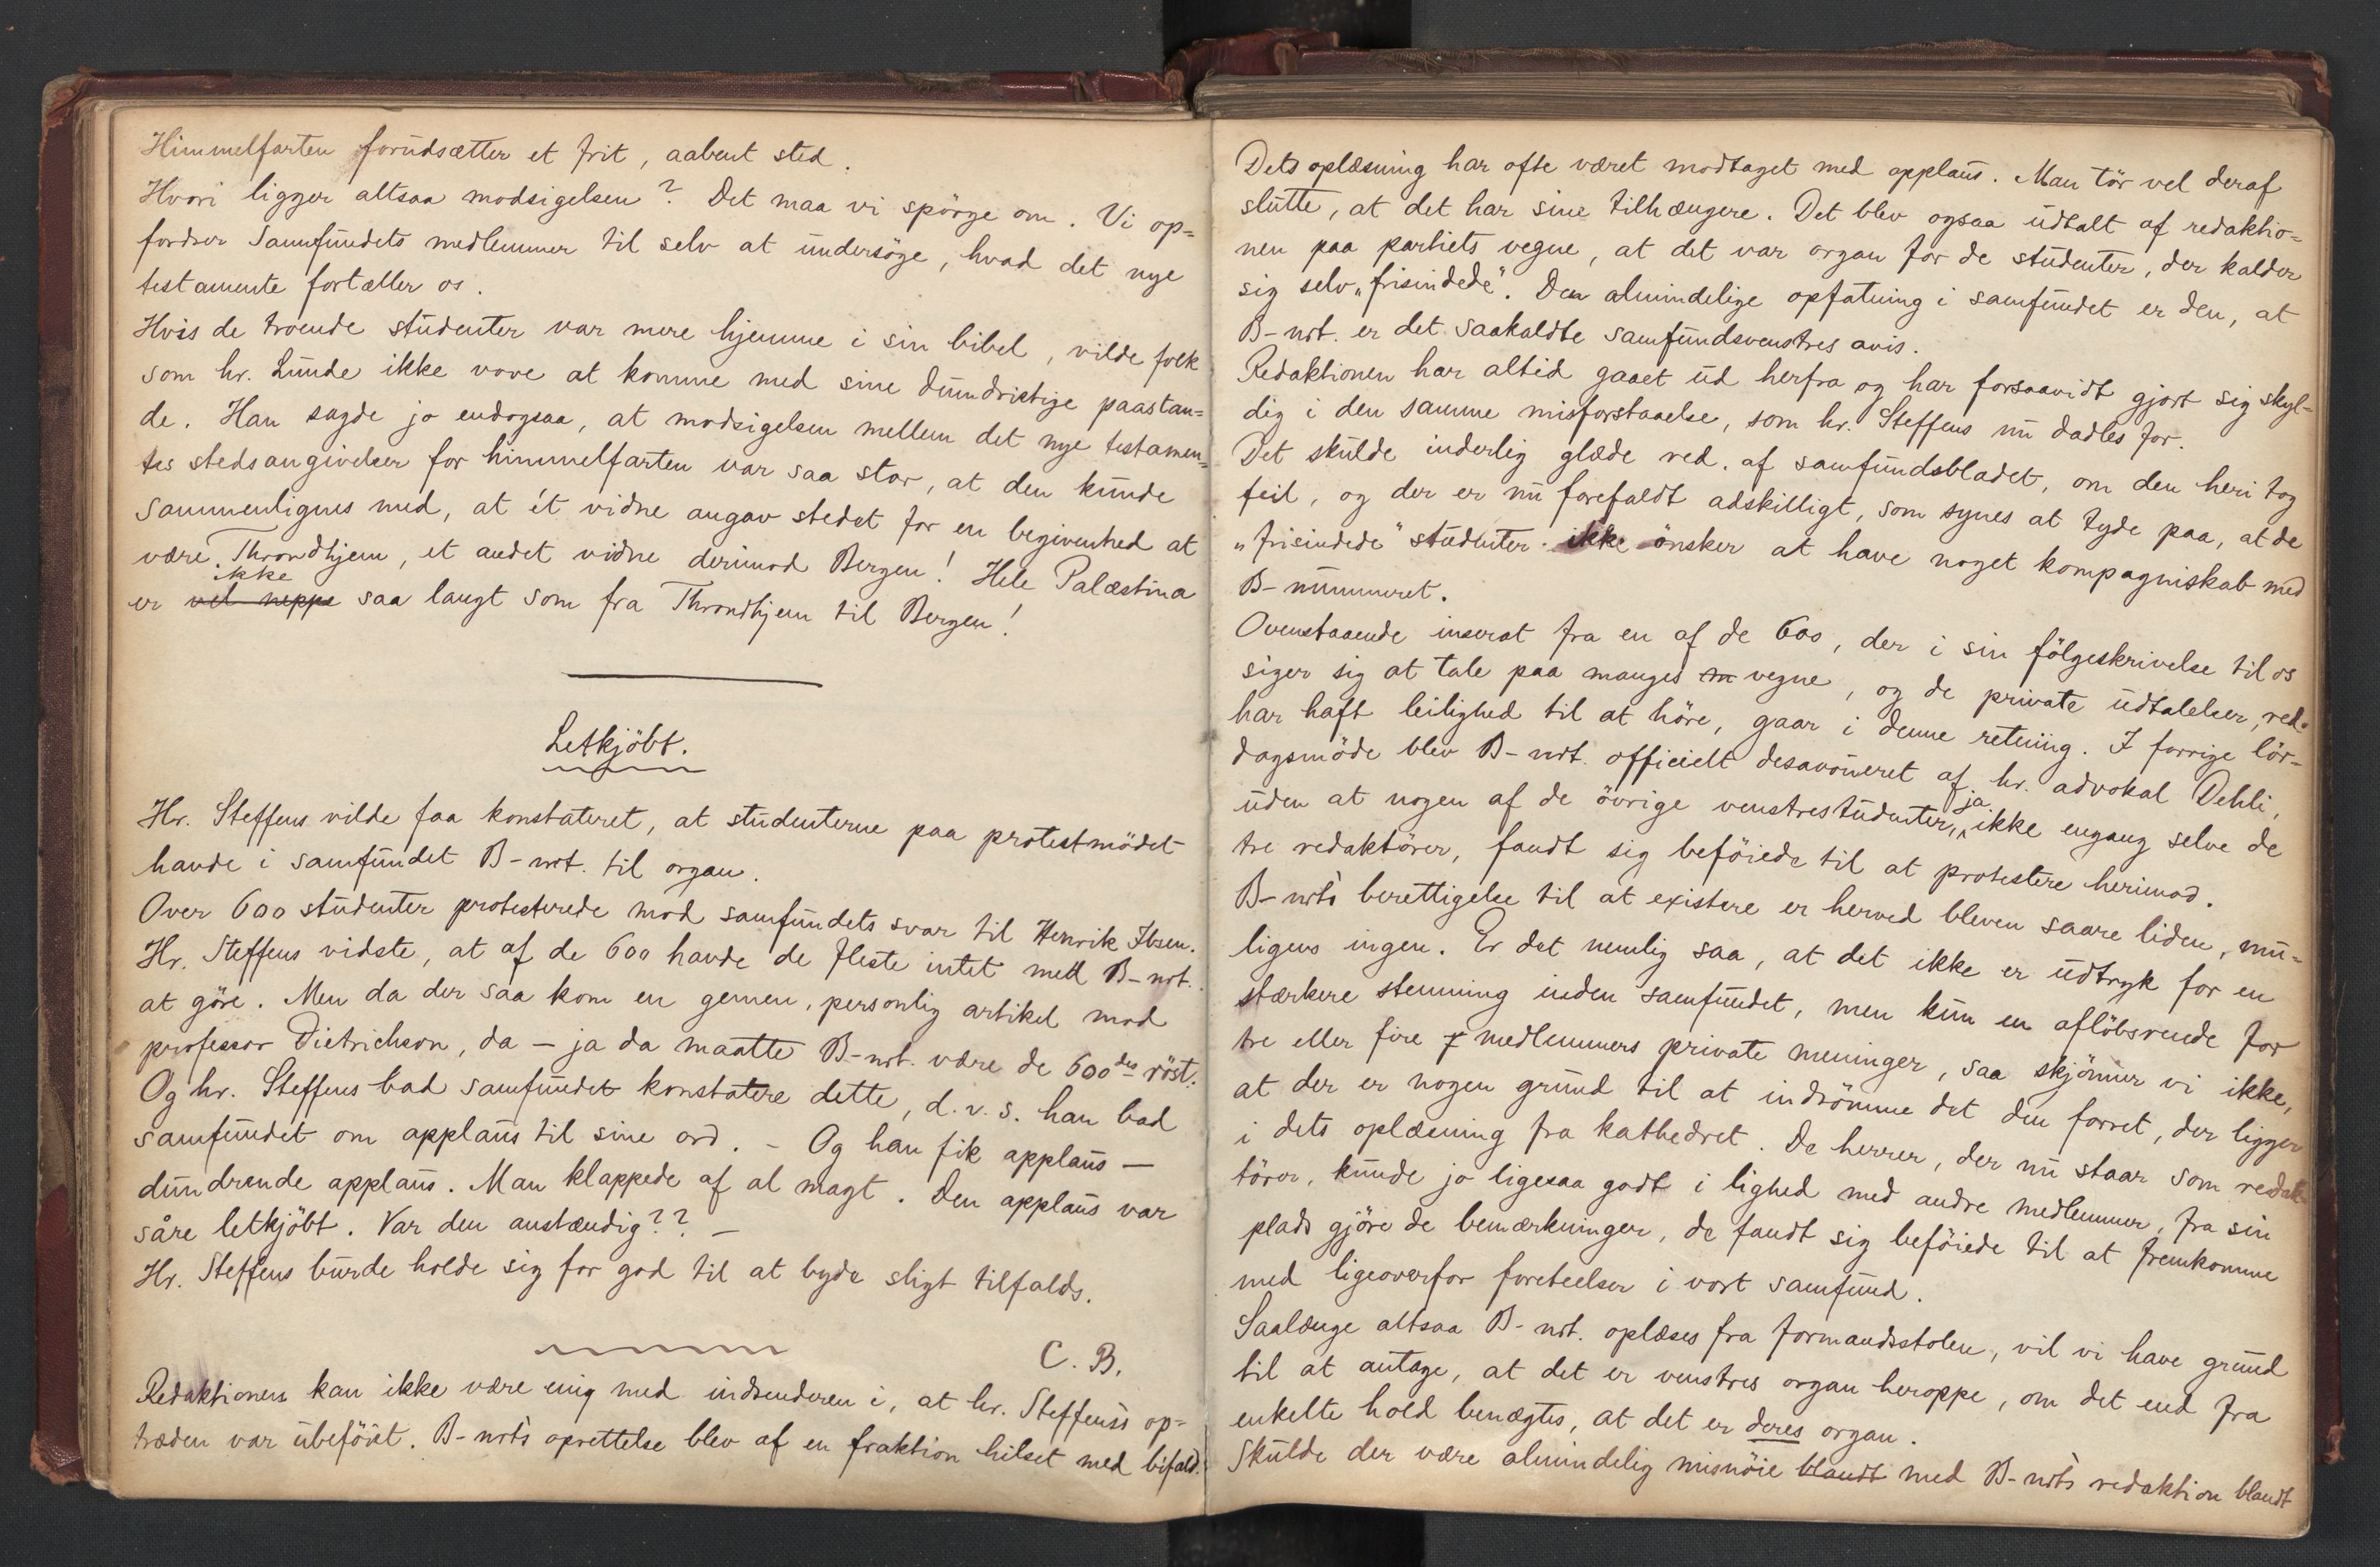 Himmelfarten forudsætter et frit, aabent sted.
Hvori ligger altsaa modsigelsen? Det maa vi spörge om. Vi op=
fordrer Samfundets medlemmer til selv at undersöge, hvad det nye
testamente fortæller os.
Hvis de troende studenter var mere hjemme i sin bibel, vilde folk
som hr. Lunde ikke vove at komme med sine dumdristige paastan=
de. Han sagde jo endogsaa, at modsigelsen mellem det nye testamen=
tes stedsangivelser for himmelfarten var saa stor, at den kunde
sammenlignes med, at ét vidne angav stedet for en begivenhed at
være Throndhjem, et andet vidne derimod Bergen! Hele Palæstina
ikke
er vel neppe saa langt som fra Throndhjem til Bergen!
Letkjöbt.
Hr. Steffens vilde faa konstateret, at studenterne paa protestmödet
havde i samfundet B-nrt. til organ.
Over 600 studenter protesterede mod samfundets svar til Henrik Ibsen.
Hr. Steffens vidste, at af de 600 havde de fleste intet med B-nrt.
at göre. Men da der saa kom en gemen, personlig artikel mod
professor Dietrichson, da — ja da maatte B-nrt. være de 600des röst.
Og hr. Steffens bad samfundet konstatere dette, d.v.s. han bad
samfundet om applaus til sine ord. – Og han fik applaus —
dundrende applaus. Man klappede af al magt. Den applaus var
såre letkjöbt. Var den anstændig?? –
Hr. Steffens burde holde sig for god til at byde sligt tilfals.
C. B.
Redaktionen kan ikke være enig med indsenderen i, at hr. Steffens's op=
træden var ubeföiet. B-nrt's oprettelse blev af en fraktion hilset med bifald.
Dets oplæsning har ofte været modtaget med applaus. Man tör vel deraf
slutte, at det har sine tilhængere. Det blev ogsaa udtalt af redaktio=
nen paa partiets vegne, at det var organ for de studenter, der kalder
sig selv „frisindede". Den almindelige opfatning i samfundet er den, at
B-nrt. er det saakaldte samfundsvenstres avis.
Redaktionen har altid gaaet ud herfra og har forsaavidt gjort sig skyl=
dig i den samme misforstaaelse, som hr. Steffens nu dadles for.
Det skulde inderlig glæde red. af samfundsbladet, om den heri tog
feil, og der er nu forefaldt adskilligt, som synes at tyde paa, at de
„frisindede" studenter ikke önsker at have noget kompagniskab med
B-nummeret.
Ovenstaaende inserat fra en af de 600, der i sin fölgeskrivelse til os
siger sig at tale paa manges vegne, og de private udtalelser, red.
har haft leilighed til at höre, gaar i denne retning. I forrige lör=
dagsmöde blev B-nrt. officielt desavoueret af hr. advokat Dehli,
uden at nogen af de övrige venstrestudenter, ja ikke engang selve de
tre redaktörer, fandt sig beföiede til at protestere herimod.
B-nrt's berettigelse til at existere er herved bleven saare liden, mu=
ligens ingen. Er det nemlig saa, at det ikke er udtryk for en
stærkere stemning inden samfundet, men kun en aflöbsrende for
tre eller fire medlemmers private meninger, saa skjönner vi ikke,
at der er nogen grund til at indrömme det den forret, der ligger
i dets oplæsning fra kathedret. De herrer, der nu staar som redak
törer, kunde jo ligesaa godt i lighed med andre medlemmer, fra sin
plads gjöre de bemærkninger, de fandt sig beföiede til at fremkomme
med ligeoverfor foreteelser i vort samfund.
Saalænge altsaa B-nrt. oplæses fra formandsstolen, vil vi have grund
til at antage, at det er venstres organ heroppe, om det end fra
enkelte hold benægtes, at det er deres organ.
Skulde der være almindelig misnöie blandt med B-nrt's redaktion blandt